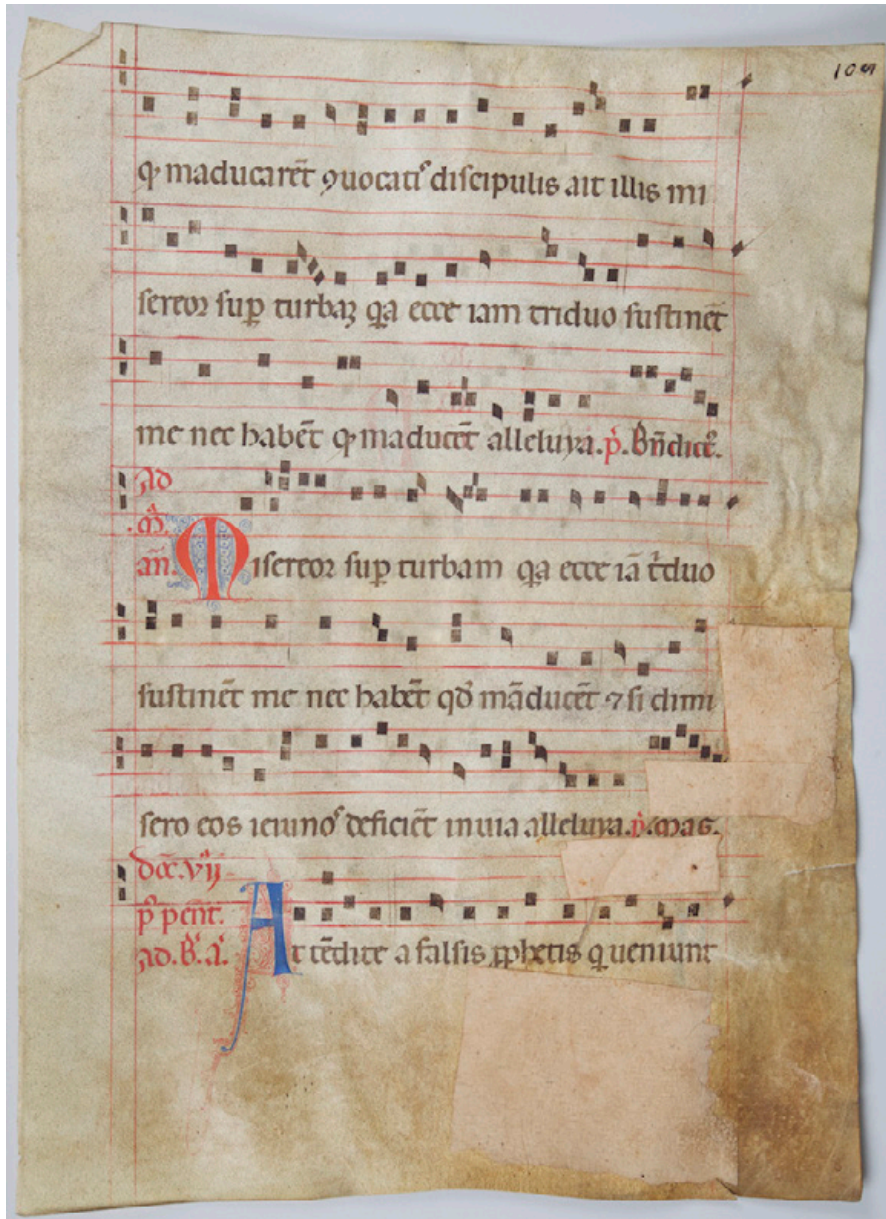 109
q maducarēt ꝯuocatis discipulis ait illis mi
sereor suꝑ turbaz qa ecce iam triduo sustinēt
me nec habēt q maducēt alleluya. p̄. Bn̄dictꝰ.
ad
.m̄.
an̄. Misereor suꝑ turbam qa ecce iā tͥduo
sustinēt me nec habēt qd̄ māducēt ⁊ si dimi
sero eos ieiunos deficiēt in uia alleluya. p̄. mag.
doc̄. vij
p̄ pent̄.
ad. B̄. a̍. At tēdite a falsis ꝓphetis q ueniunt